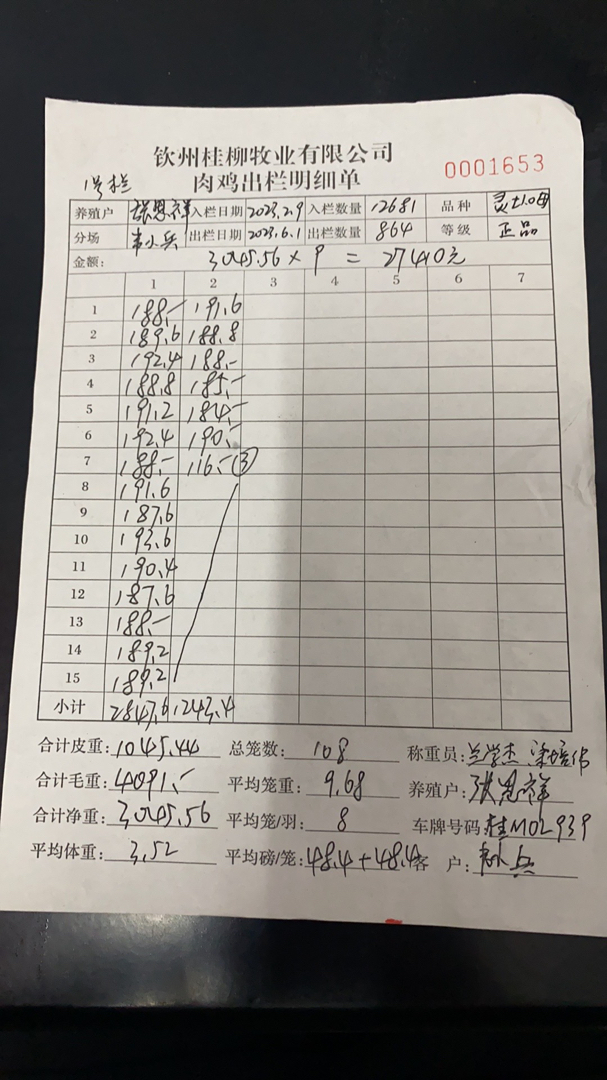 钦州桂柳牧业有限公司
0001653
1号栏
肉鸡出栏明细单
养殖户 张恩祥 入栏日期 2023.2.9 入栏数量 12681 品种
分场 韦小兵 出栏日期 2023.6.1 出栏数量 864 等级 正品
金额: 3045.56 × 9 = 27410元
1 2 3 4 5 6 7
1 188.- 191.6
2 189.6 188.8
3 192.4 188.-
4 188.8 185.-
5 191.2 184.-
6 192.4 190.-
7 188.- 116.- ③
8 191.6
9 187.6
10 193.6
11 190.4
12 187.6
13 188.-
14 189.2
15 189.2
小计 2847.6 1243.4
合计皮重: 1045.44 总笼数: 108 称重员: 兰学杰
合计毛重: 4091.- 平均笼重: 9.68 养殖户: 张恩祥
合计净重: 3045.56 平均笼/羽: 8 车牌号码 桂M02939
平均体重: 3.52 平均磅/笼: 48.4+48.4 客户: